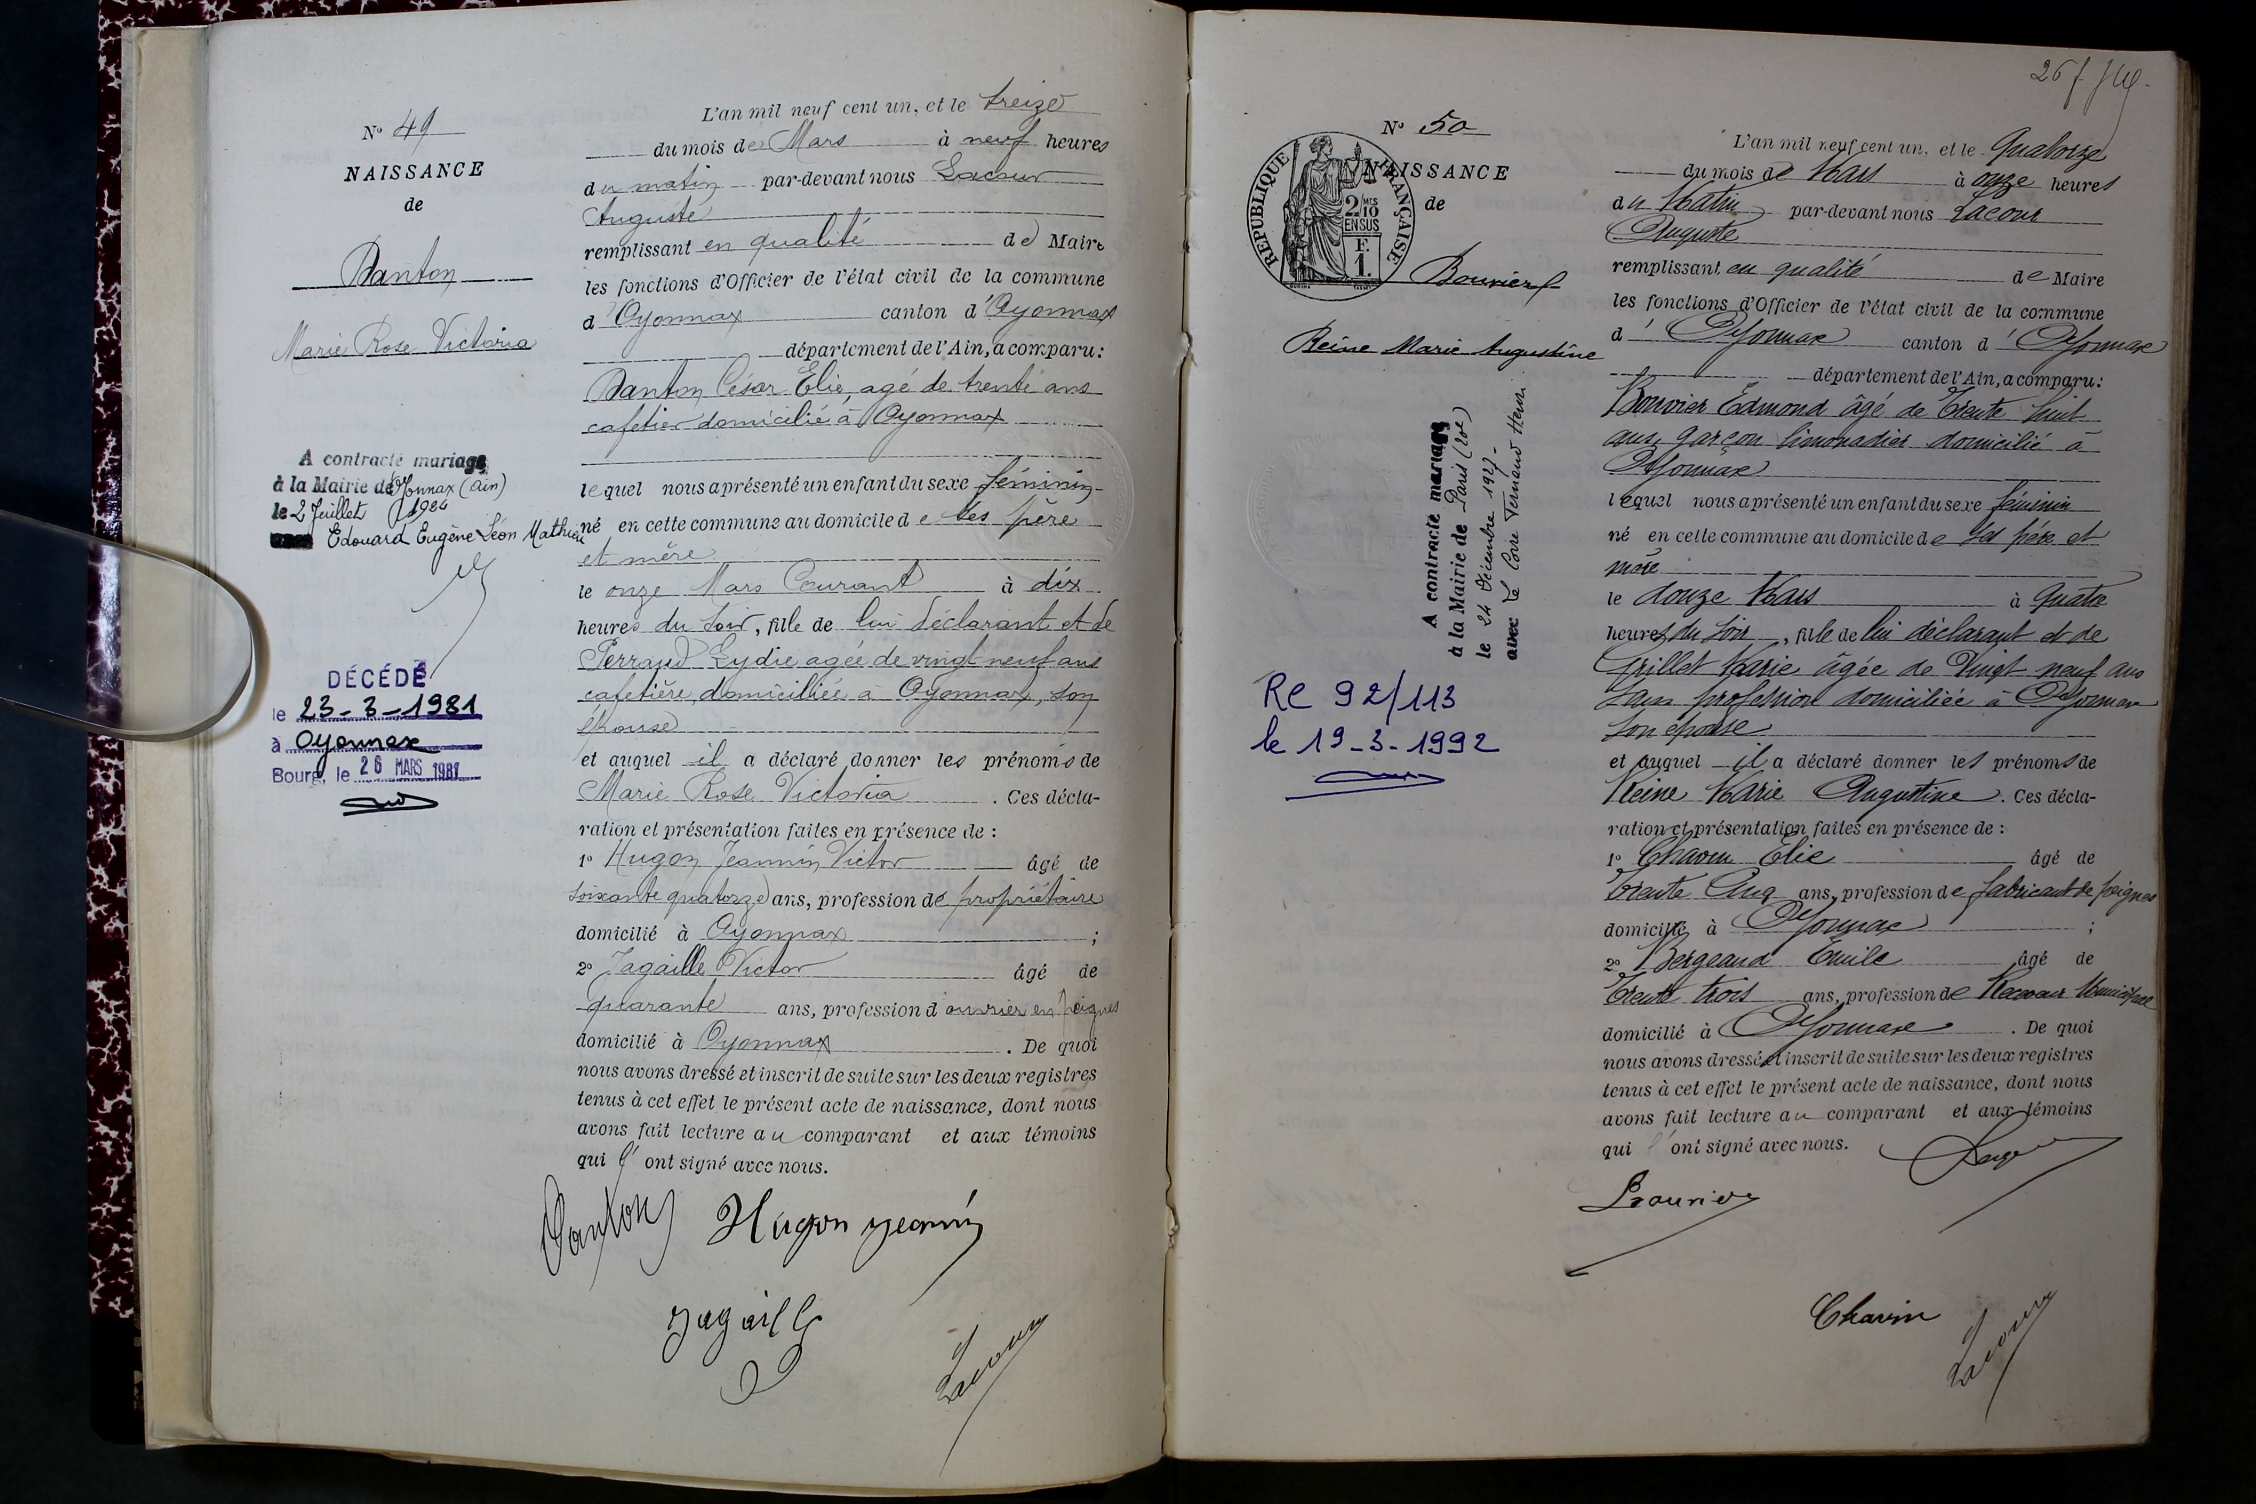 N° 49
NAISSANCE
de
Danton
Marie Rose Victoria
A contracté mariage
à la Mairie d'Oyonnax (Ain)
le 2 Juillet
Edouard Eugène Léon Mathieu
DÉCÉDÉ
le 23-3-1981
à Oyonnax
Bourg, le 26 MARS 1981
L'an mil neuf cent un, et le treize
du mois de Mars à neuf heures
du matin par-devant nous Lacour
Auguste
remplissant en qualité de Maire
les fonctions d'Officier de l'état civil de la commune
d'Oyonnax canton d'Oyonnax
département de l'Ain, a comparu:
Danton César Elie, agé de trente ans
cafetier domicilié à Oyonnax
lequel nous a présenté un enfant du sexe féminin
né en cette commune au domicile de ses père
et mère
le onze Mars Courant à dix
heures du soir, fille de lui déclarant et de
Perraud Lydie agée de vingt neuf ans
cafetière domiciliée à Oyonnax, son
épouse
et auquel il a déclaré donner les prénoms de
Marie Rose Victoria. Ces décla-
ration et présentation faites en présence de :
1° Hugon Jeannin Victor âgé de
soixante quatorze ans, profession de propriétaire
domicilié à Oyonnax ;
2° Jagaille Victor âgé de
quarante ans, profession d'ouvrier en peignes
domicilié à Oyonnax. De quoi
nous avons dressé et inscrit de suite sur les deux registres
tenus à cet effet le présent acte de naissance, dont nous
avons fait lecture au comparant et aux témoins
qui l'ont signé avec nous.
Danton Hugon Jeannin
Jagaille
Lacour
26 f.
N° 50
NAISSANCE
de
REPUBLIQUE FRANÇAISE
2/10 MES
EN SUS
F.
1.
Bouvier
Reine Marie Augustine
A contracté mariage
à la Mairie de Paris (20e)
le 24 Décembre 1927-
avec Le Corre Fernand Henri
RC 92/113
le 19-3-1992
L'an mil neuf cent un, et le Quatorze
du mois de Mars à onze heures
du Matin par-devant nous Lacour
Auguste
remplissant en qualité de Maire
les fonctions d'Officier de l'état civil de la commune
d'Oyonnax canton d'Oyonnax
département de l'Ain, a comparu:
Bouvier Edmond âgé de Trente huit
ans, garçon limonadier domicilié à
Oyonnax
lequel nous a présenté un enfant du sexe féminin
né en cette commune au domicile de ses père et
mère
le douze Mars à Quatre
heures du soir, fille de lui déclarant et de
Grillet Marie âgée de Vingt neuf ans
sans profession domiciliée à Oyonnax
son épouse
et auquel il a déclaré donner les prénoms de
Reine Marie Augustine. Ces décla-
ration et présentation faites en présence de :
1° Charin Elie âgé de
Trente Cinq ans, profession de fabricant de peignes
domicilié à Oyonnax ;
2° Bergeaud Emile âgé de
Trente trois ans, profession de Receveur Municipal
domicilié à Oyonnax. De quoi
nous avons dressé et inscrit de suite sur les deux registres
tenus à cet effet le présent acte de naissance, dont nous
avons fait lecture au comparant et aux témoins
qui l'ont signé avec nous.
Bouvier
Charin
Lacour